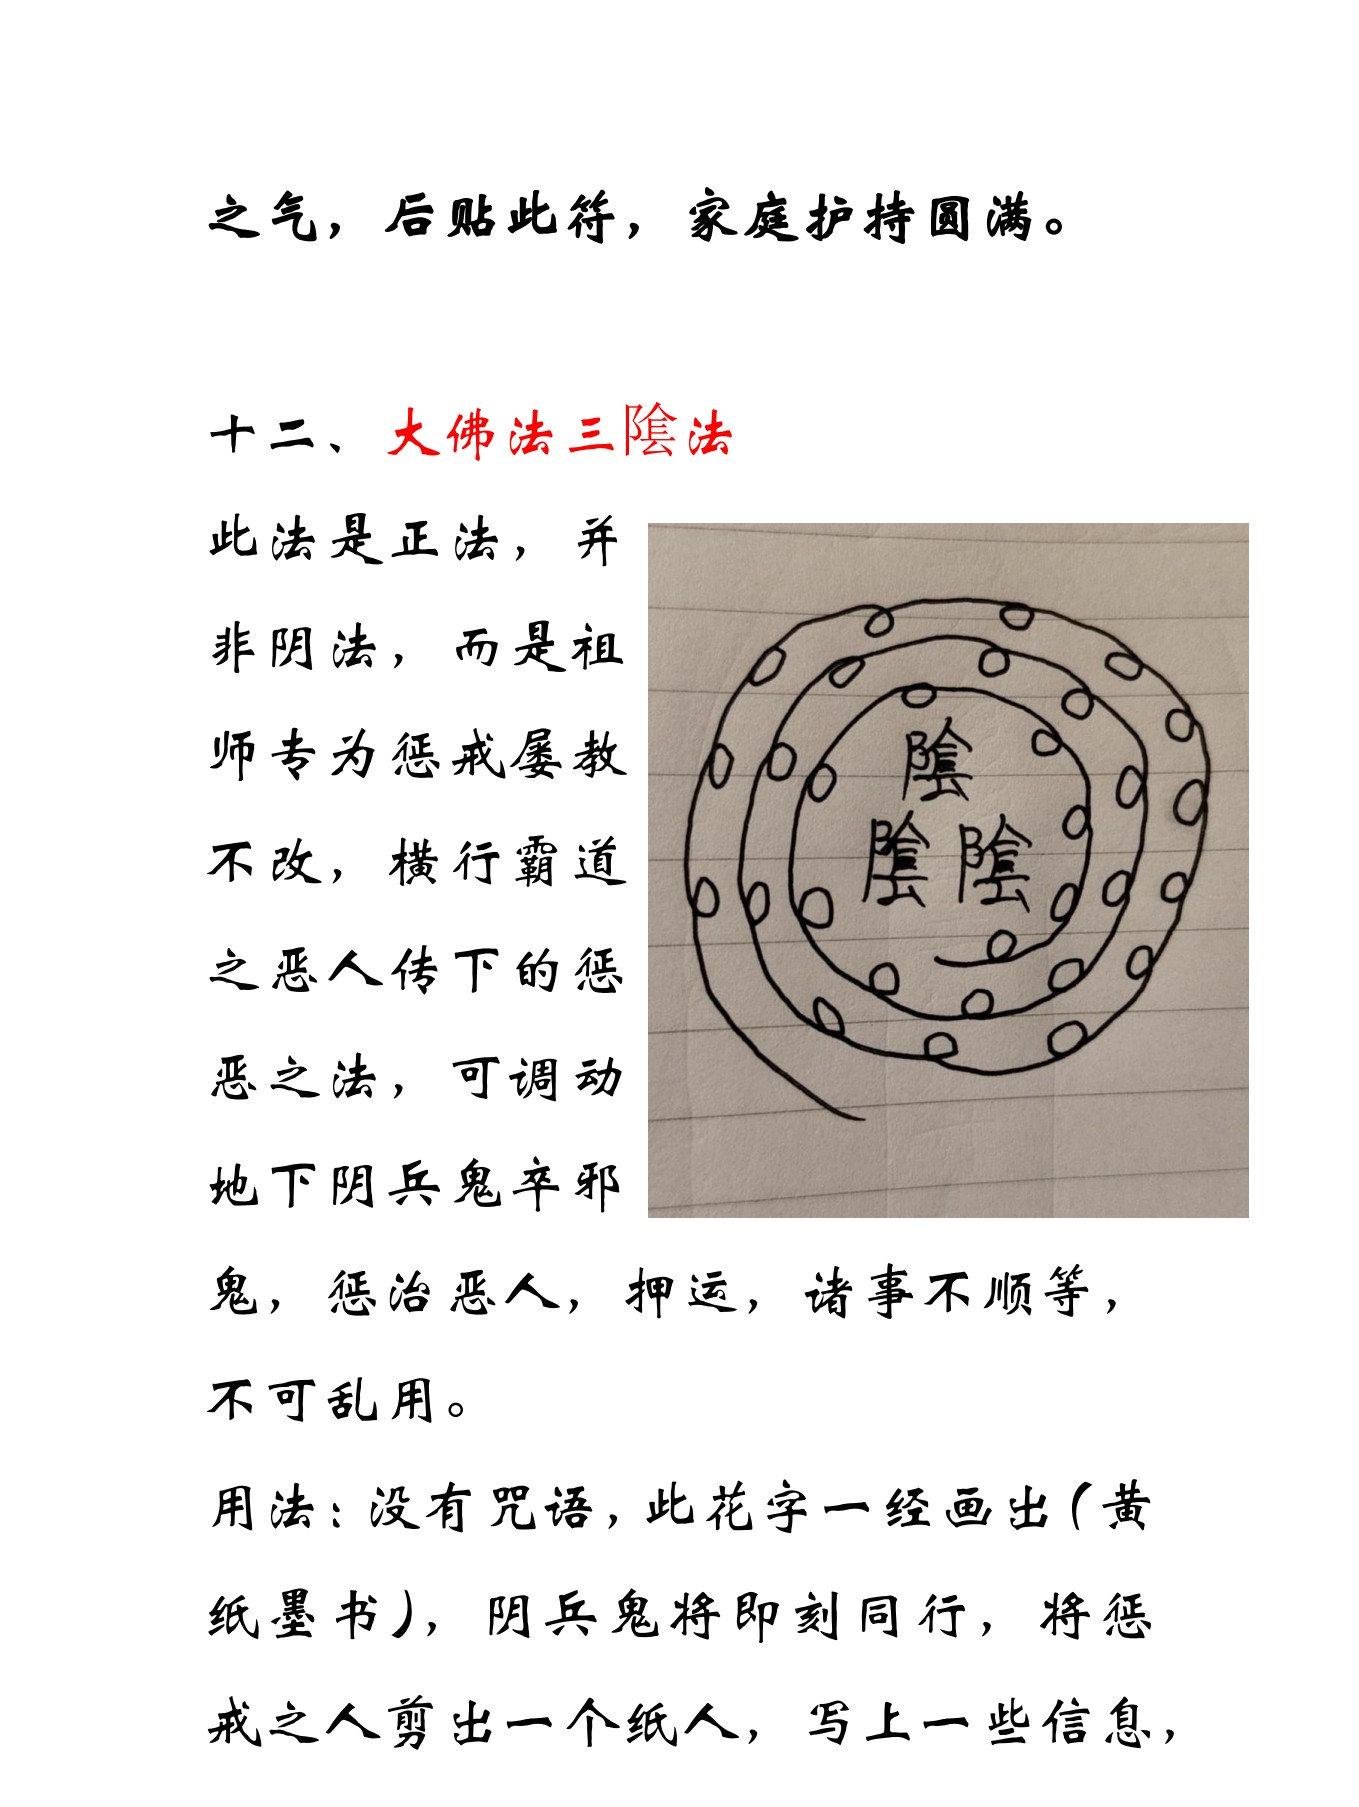 之气，后贴此符，家庭护持圆满。
十二、大佛法三隂法
此法是正法，并
非阴法，而是祖
师专为惩戒屡教
不改，横行霸道
之恶人传下的惩
恶之法，可调动
地下阴兵鬼卒邪
隂
隂隂
鬼，惩治恶人，押运，诸事不顺等，
不可乱用。
用法：没有咒语，此花字一经画出（黄
纸墨书），阴兵鬼将即刻同行，将惩
戒之人剪出一个纸人，写上一些信息，